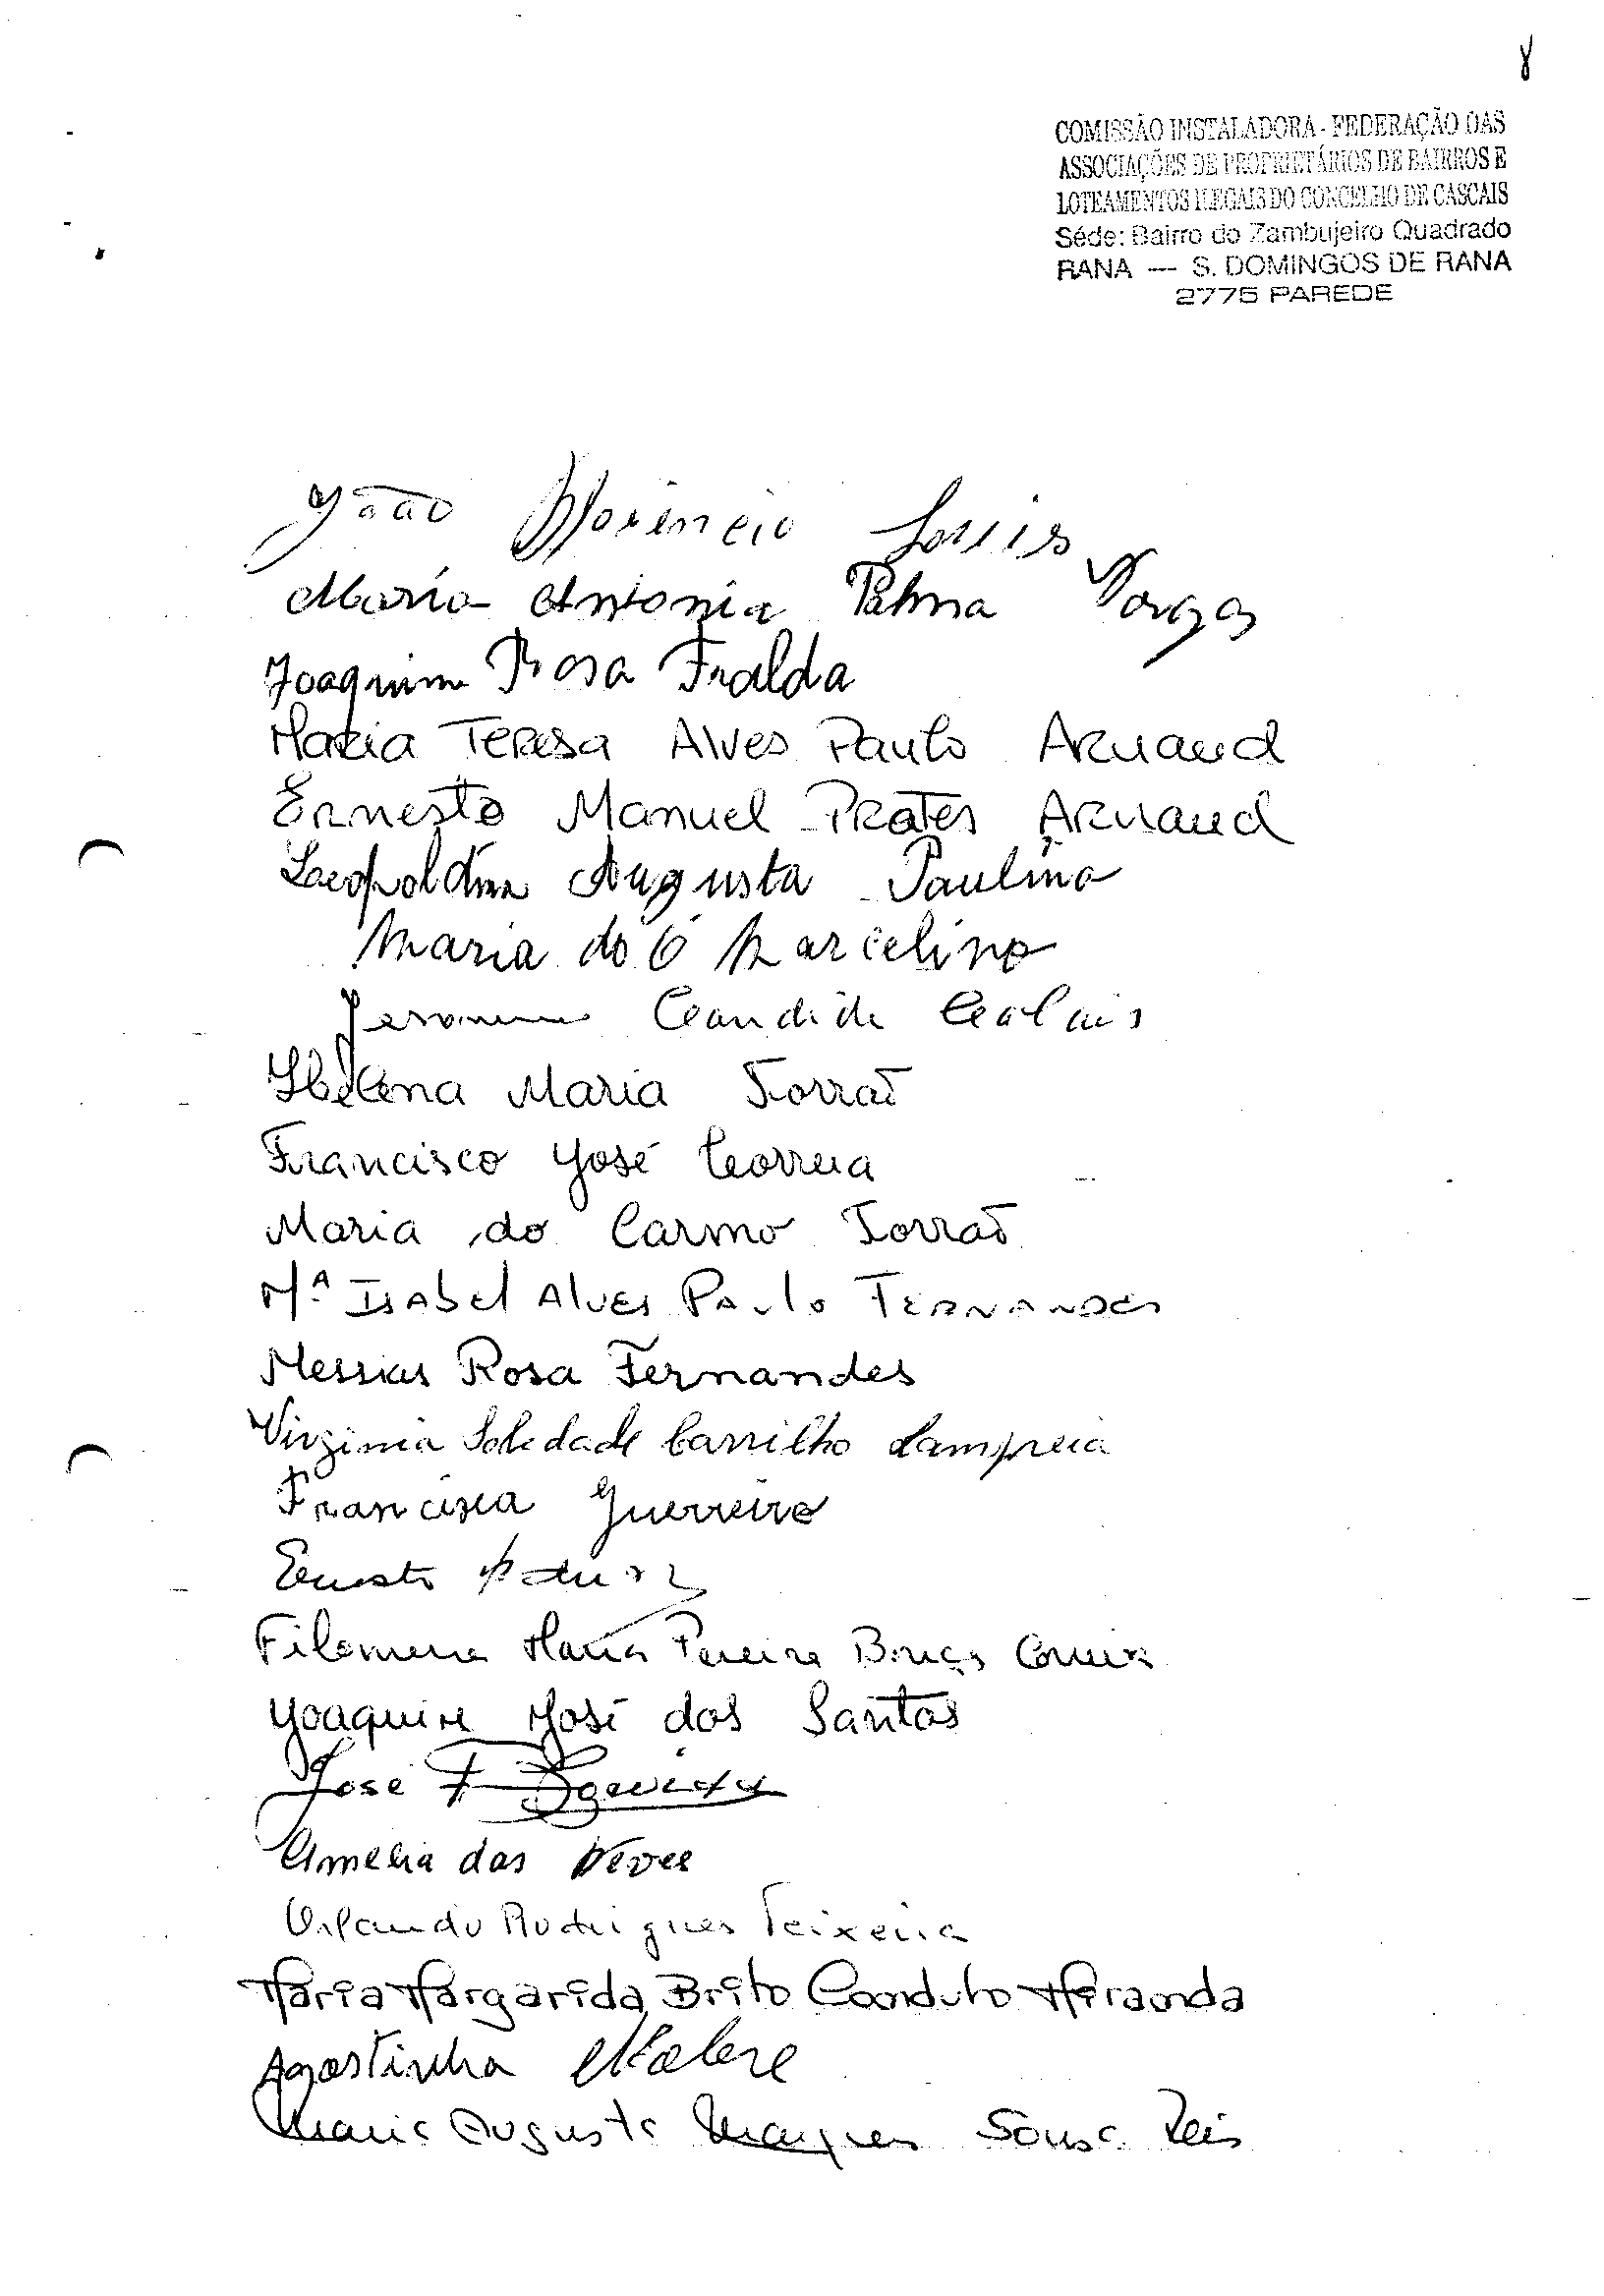 8
COMISSÃO INSTALADORA - FEDERAÇÃO DAS
ASSOCIAÇÕES DE PROPRIETÁRIOS DE BAIRROS E
LOTEAMENTOS ILEGAIS DO CONCELHO DE CASCAIS
Séde: Bairro do Zambujeiro Quadrado
RANA — S. DOMINGOS DE RANA
2775 PAREDE
João Florencio Louis
Maria Antonia Palma Vargas
Joaquim Rosa Fralda
Maria Teresa Alves Paulo Arnaud
Ernesto Manuel Prates Arnaud
Leopoldina Augusta Paulino
Maria do Ó Marcelino
Candide
Helena Maria Torrão
Francisco José Correia
Maria do Carmo Torrão
Mª Isabel Alves Paulo Fernandes
Messias Rosa Fernandes
Virginia Soledade Carrilho Lampreia
Francisca Guerreiro
Ernesto
Filomena Maria Pereira Correia
Joaquim José dos Santos
José F.
Amelia das Neves
Orlando Rodrigues Teixeira
Maria Margarida Brito Conduto Miranda
Agostinha Nobre
Maria Augusta Marques Sousa Reis